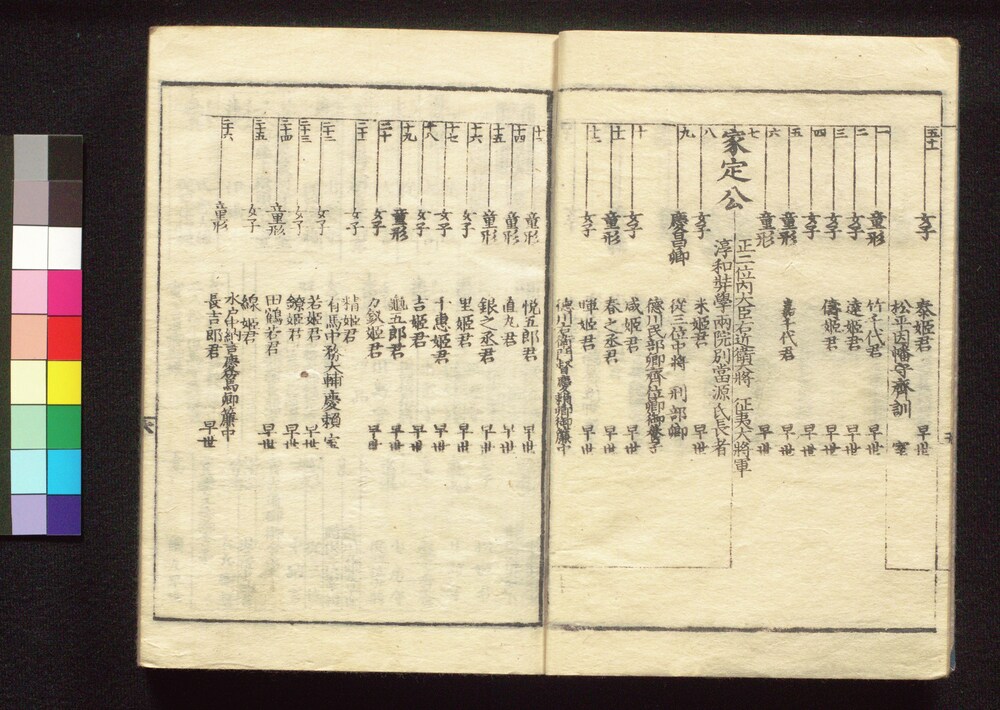 五十一 女子 泰姫君 早世
松平因幡守齊訓 室
一 童形 竹千代君 早世
二 女子 達姫君 早世
三 女子 儔姫君 早世
四 女子 早世
五 童形 嘉千代君 早世
六 童形 早世
七 家定公 正二位内大臣右近衞大將 征夷大將軍
淳和奬學兩院別當源氏長者
八 女子 米姫君 早世
九 慶昌卿 從三位中將 刑部卿
德川民部卿齊位卿御養子
十 女子 咸姫君 早世
十一 童形 春之丞君 早世
十二 女子 暉姫君 早世
德川右衞門督慶賴卿御簾中
童形 悦五郎君 早世
十四 童形 直丸君 早世
十五 童形 銀之丞君 早世
十六 女子 里姫君 早世
十七 女子 千惠姫君 早世
十八 女子 吉姫君 早世
十九 童形 龜五郎君 早世
二十 女子 万釵姫君 早世
二十一 女子 精姫君
有馬中務大輔慶賴 室
二十二 女子 若姫君 早世
二十三 女子 鐐姫君 早世
二十四 童形 田鶴若君 早世
二十五 女子 線姫君
水戸中納言慶篤卿簾中
二十六 童形 長吉郎君 早世